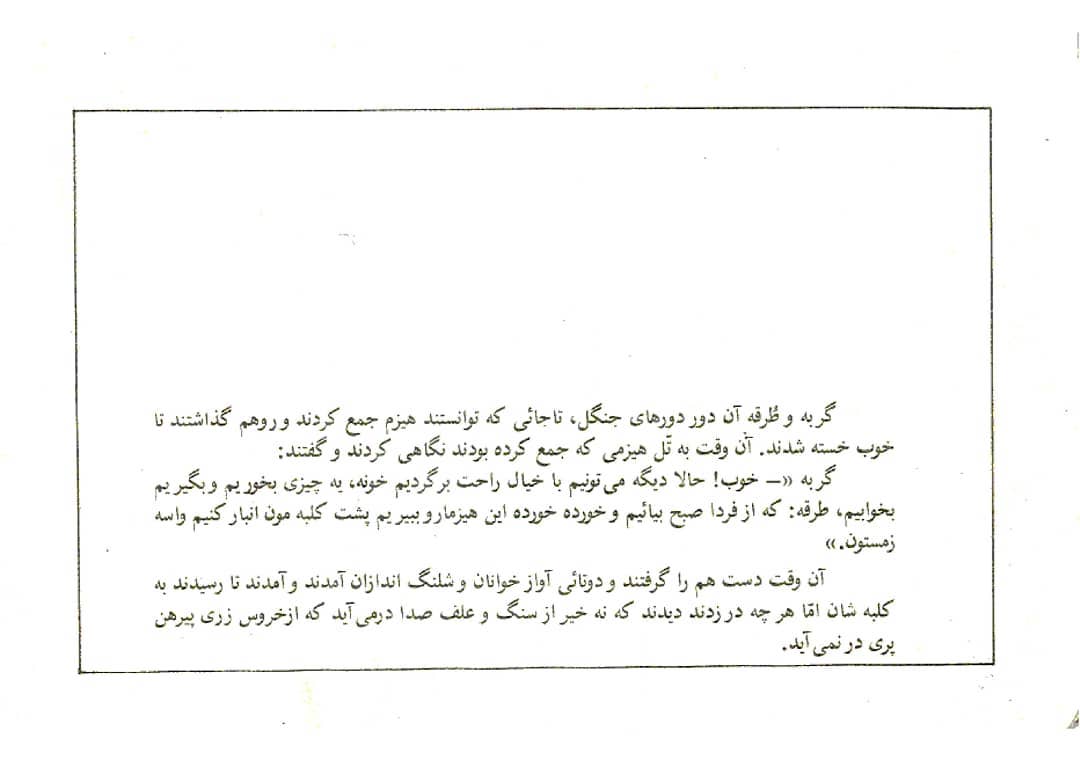 گربه و طُرقه آن دور دورهای جنگل، تاجائی که توانستند هیزم جمع کردند و روهم گذاشتند تا
خوب خسته شدند. آن وقت به تّل هیزمی که جمع کرده بودند نگاهی کردند و گفتند:
گربه «– خوب! حالا دیگه می‌تونیم با خیال راحت برگردیم خونه، یه چیزی بخوریم و بگیریم
بخوابیم، طرقه: که از فردا صبح بیائیم و خورده خورده این هیزمارو ببریم پشت کلبه مون انبار کنیم واسه
زمستون.»
آن وقت دست هم را گرفتند و دوتائی آواز خوانان و شلنگ اندازان آمدند و آمدند تا رسیدند به
کلبه شان امّا هر چه در زدند دیدند که نه خیر از سنگ و علف صدا درمی‌آید که ازخروس زری پیرهن
پری در نمی‌آید.